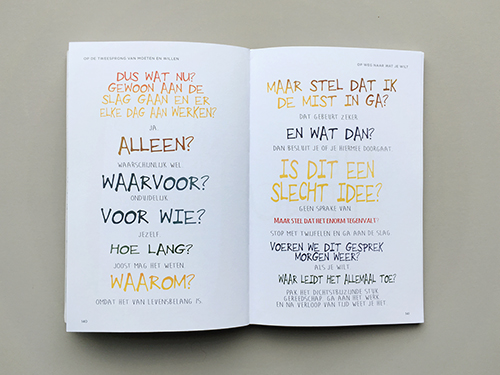 OP DE TWEESPRONG VAN MOETEN EN WILLEN
DUS WAT NU?
GEWOON AAN DE
SLAG GAAN EN ER
ELKE DAG AAN WERKEN?
JA
ALLEEN?
WAARSCHIJNLIJK WEL
WAARVOOR?
ONDUIDELIJK
VOOR WIE?
JEZELF
HOE LANG?
JOOST MAG HET WETEN
WAAROM?
OMDAT HET VAN LEVENSBELANG IS
OP WEG NAAR WAT JE WILT
MAAR STEL DAT IK
DE MIST IN GA?
DAT GEBEURT ZEKER
EN WAT DAN?
DAN BESLUIT JE OF JE HIERMEE DOORGAAT
IS DIT EEN
SLECHT IDEE?
GEEN SPRAKE VAN
MAAR STEL DAT HET ENORM TEGENVALT?
STOP MET TWIJFELEN EN GA AAN DE SLAG
VOEREN WE DIT GESPREK
MORGEN WEER?
ALS JE WILT
WAAR LEIDT HET ALLEMAAL TOE?
PAK HET DICHTSTBIJZIJNDE STUK
GEREEDSCHAP, GA AAN HET WERK
EN NA VERLOOP VAN TIJD WEET JE HET